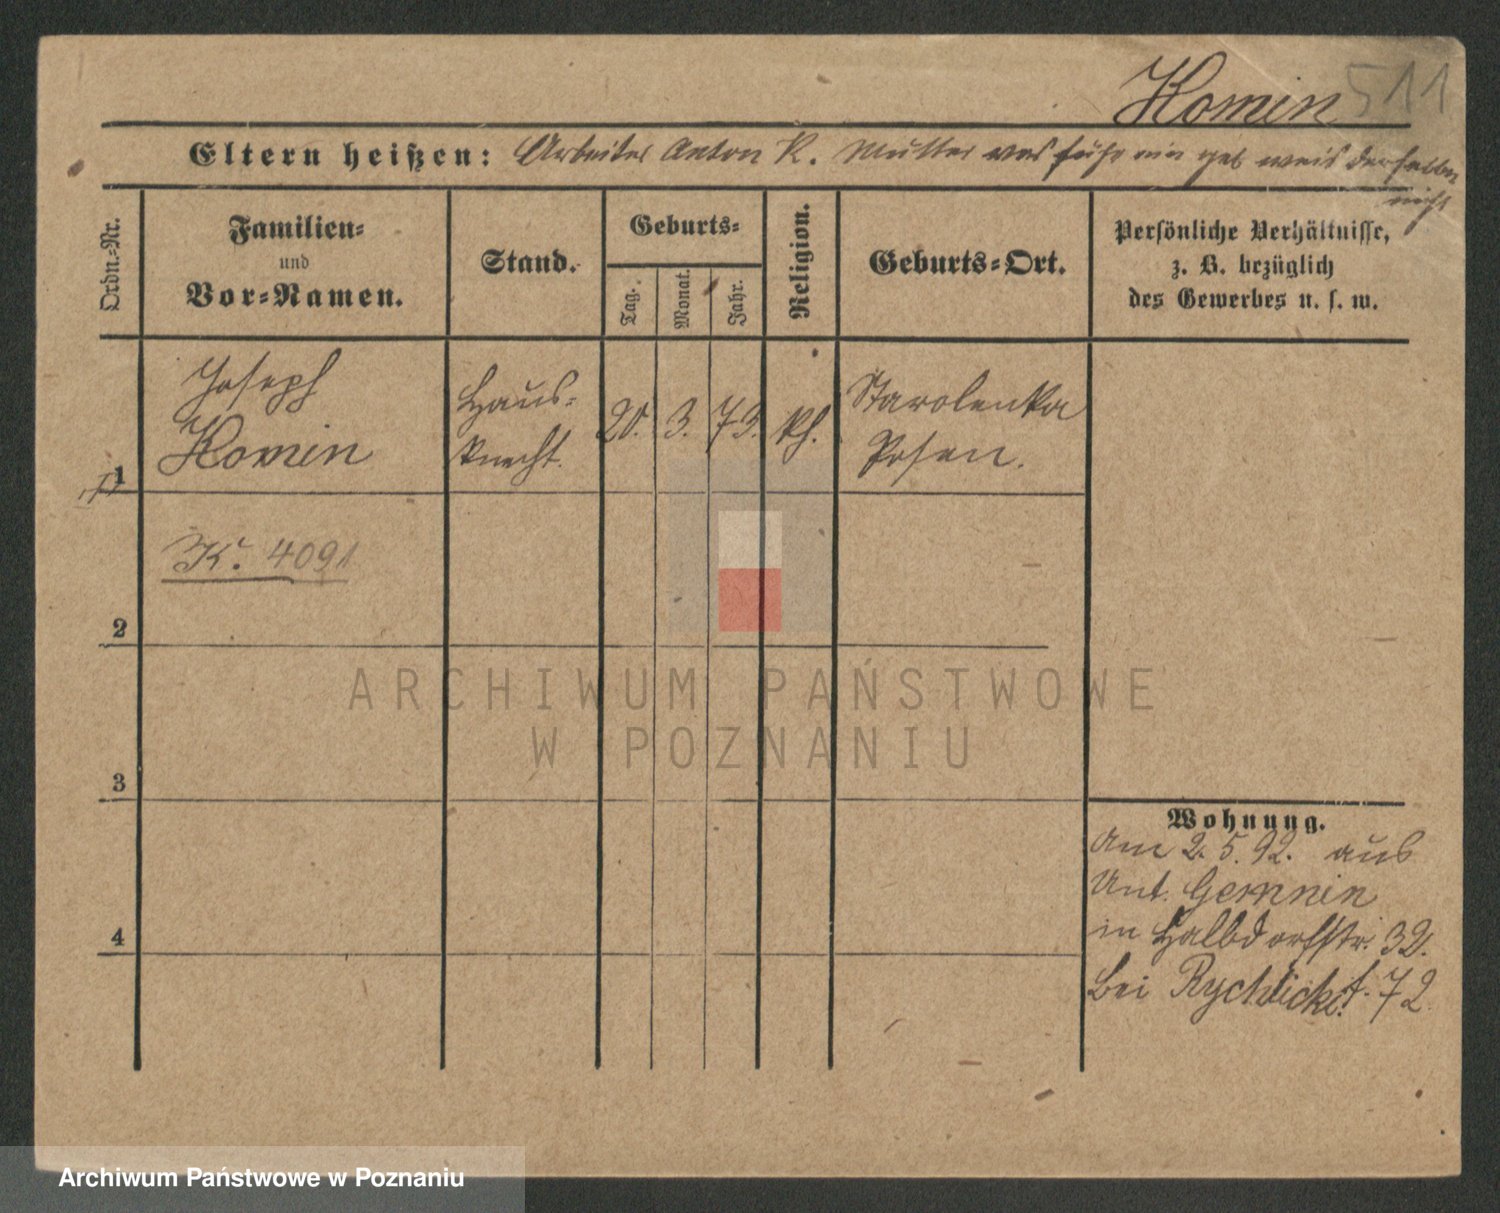 Komin 511
Eltern heißen: Arbeiter Anton K. Mutter was für ein geb weis derselbe
nicht
Ordn.-Nr.
Familien-
und
Vor-Namen.
Stand.
Geburts-
Tag.
Monat.
Jahr.
Religion.
Geburts-Ort.
Persönliche Verhältnisse,
z. B. bezüglich
des Gewerbes u. s. w.
1
Joseph
Komin
Haus-
knecht.
20. 3. 73. kh.
Starolenka
Posen.
K. 4091
2
3
4
Wohnung.
Am 2. 5. 92. aus
Unt. Gemnin
in Halbdorfstr. 32.
bei Rychlicki f. 72
ARCHIWUM PAŃSTWOWE
W POZNANIU
Archiwum Państwowe w Poznaniu